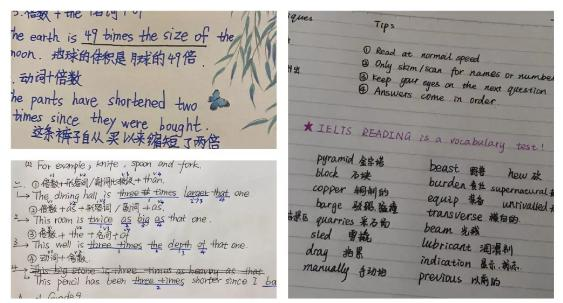 3.倍数+the+名词+of
he earth is 49 times the size of the
moon. 地球的体积是月球的49倍.
.动词+倍数
he pants have shortened two
times since they were bought.
这条裤子自从买以来缩短了两倍
For example, knife, spoon and fork.
二. ①倍数+形容词/副词比较级+than.
The dining hall is three times larger that one
②倍数+as+形容词/副词+as.
This room is twice as big as that one.
③倍数+the+名词+of
This well is three times the depth of that one.
④动词+倍数.
This big stone is three times as heavy as that
This pencil has been three times shorter since I
iques Tips
① Read at normal speed
② Only skim/scan for names or number
③ Keep your eyes on the next question
④ Answers come in order
★ IELTS READING is a vocabulary test!
pyramid 金字塔 beast hew 砍
block 石块 burden supernatural
copper 铜制的 equip 装备 unrivalled
barge transverse 横向的
quarries 采石场 beam 光线
sled 雪橇 lubricant 润滑剂
drag 拖累 indication 显示,
manually 手动地 previous 以前的